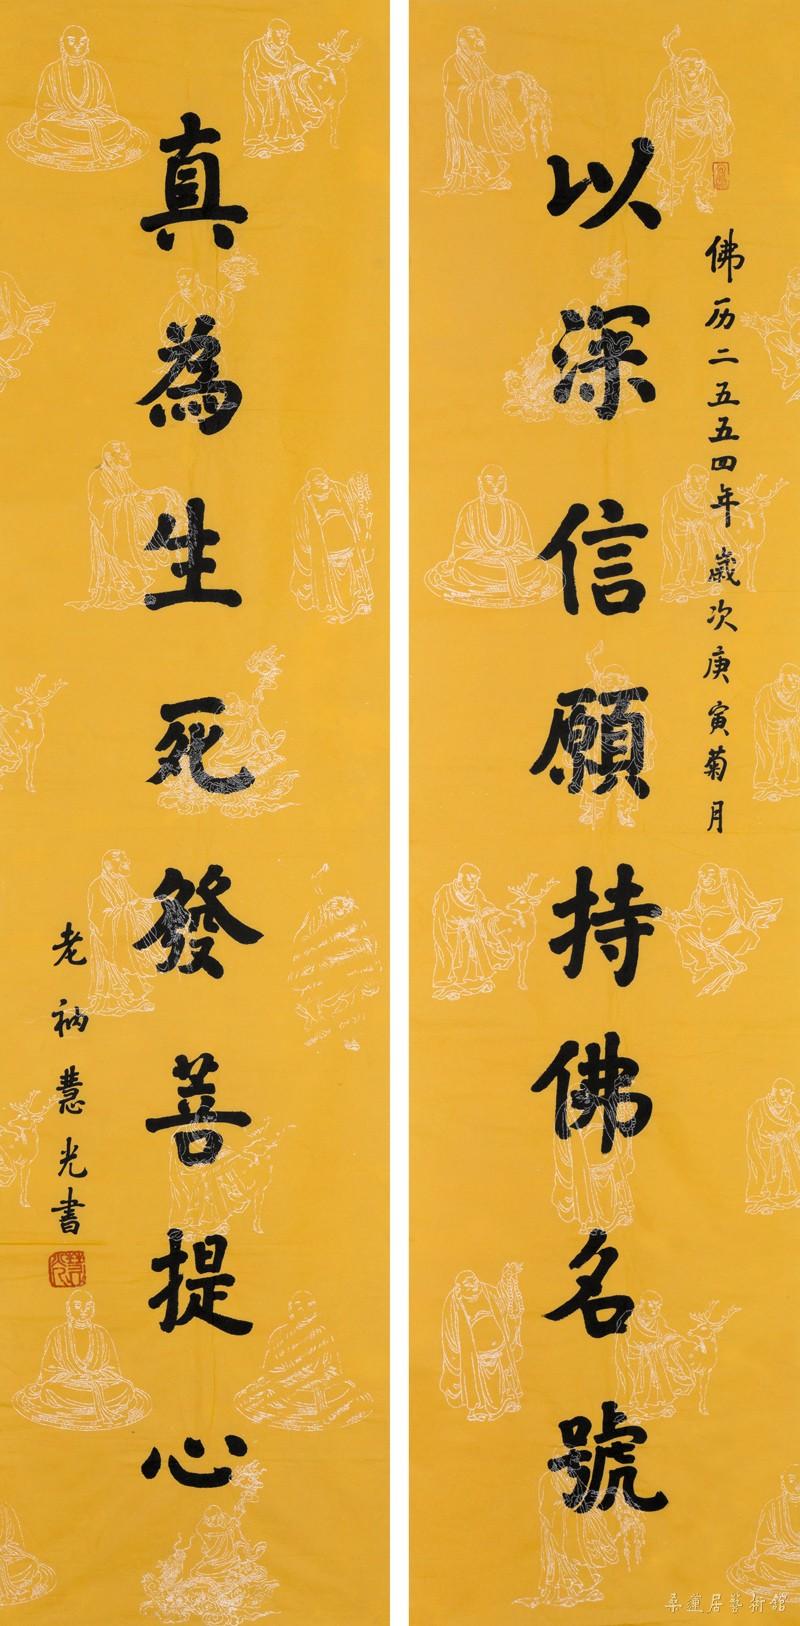 佛历二五五四年歲次庚寅菊月
以深信願持佛名號
真為生死發菩提心
老衲慧光書
桑蓮居藝術館